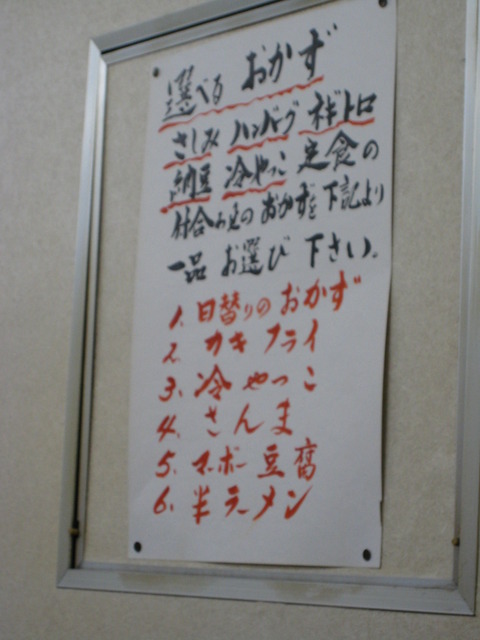 選べる おかず
さしみ ハンバーグ ネギトロ
納豆 冷やっこ 定食の
付合わせの おかずを 下記より
一品 お選び 下さい。
1. 日替りの おかず
2. カキ フライ
3. 冷 やっこ
4. さんま
5. マーボー 豆腐
6. 半ラーメン